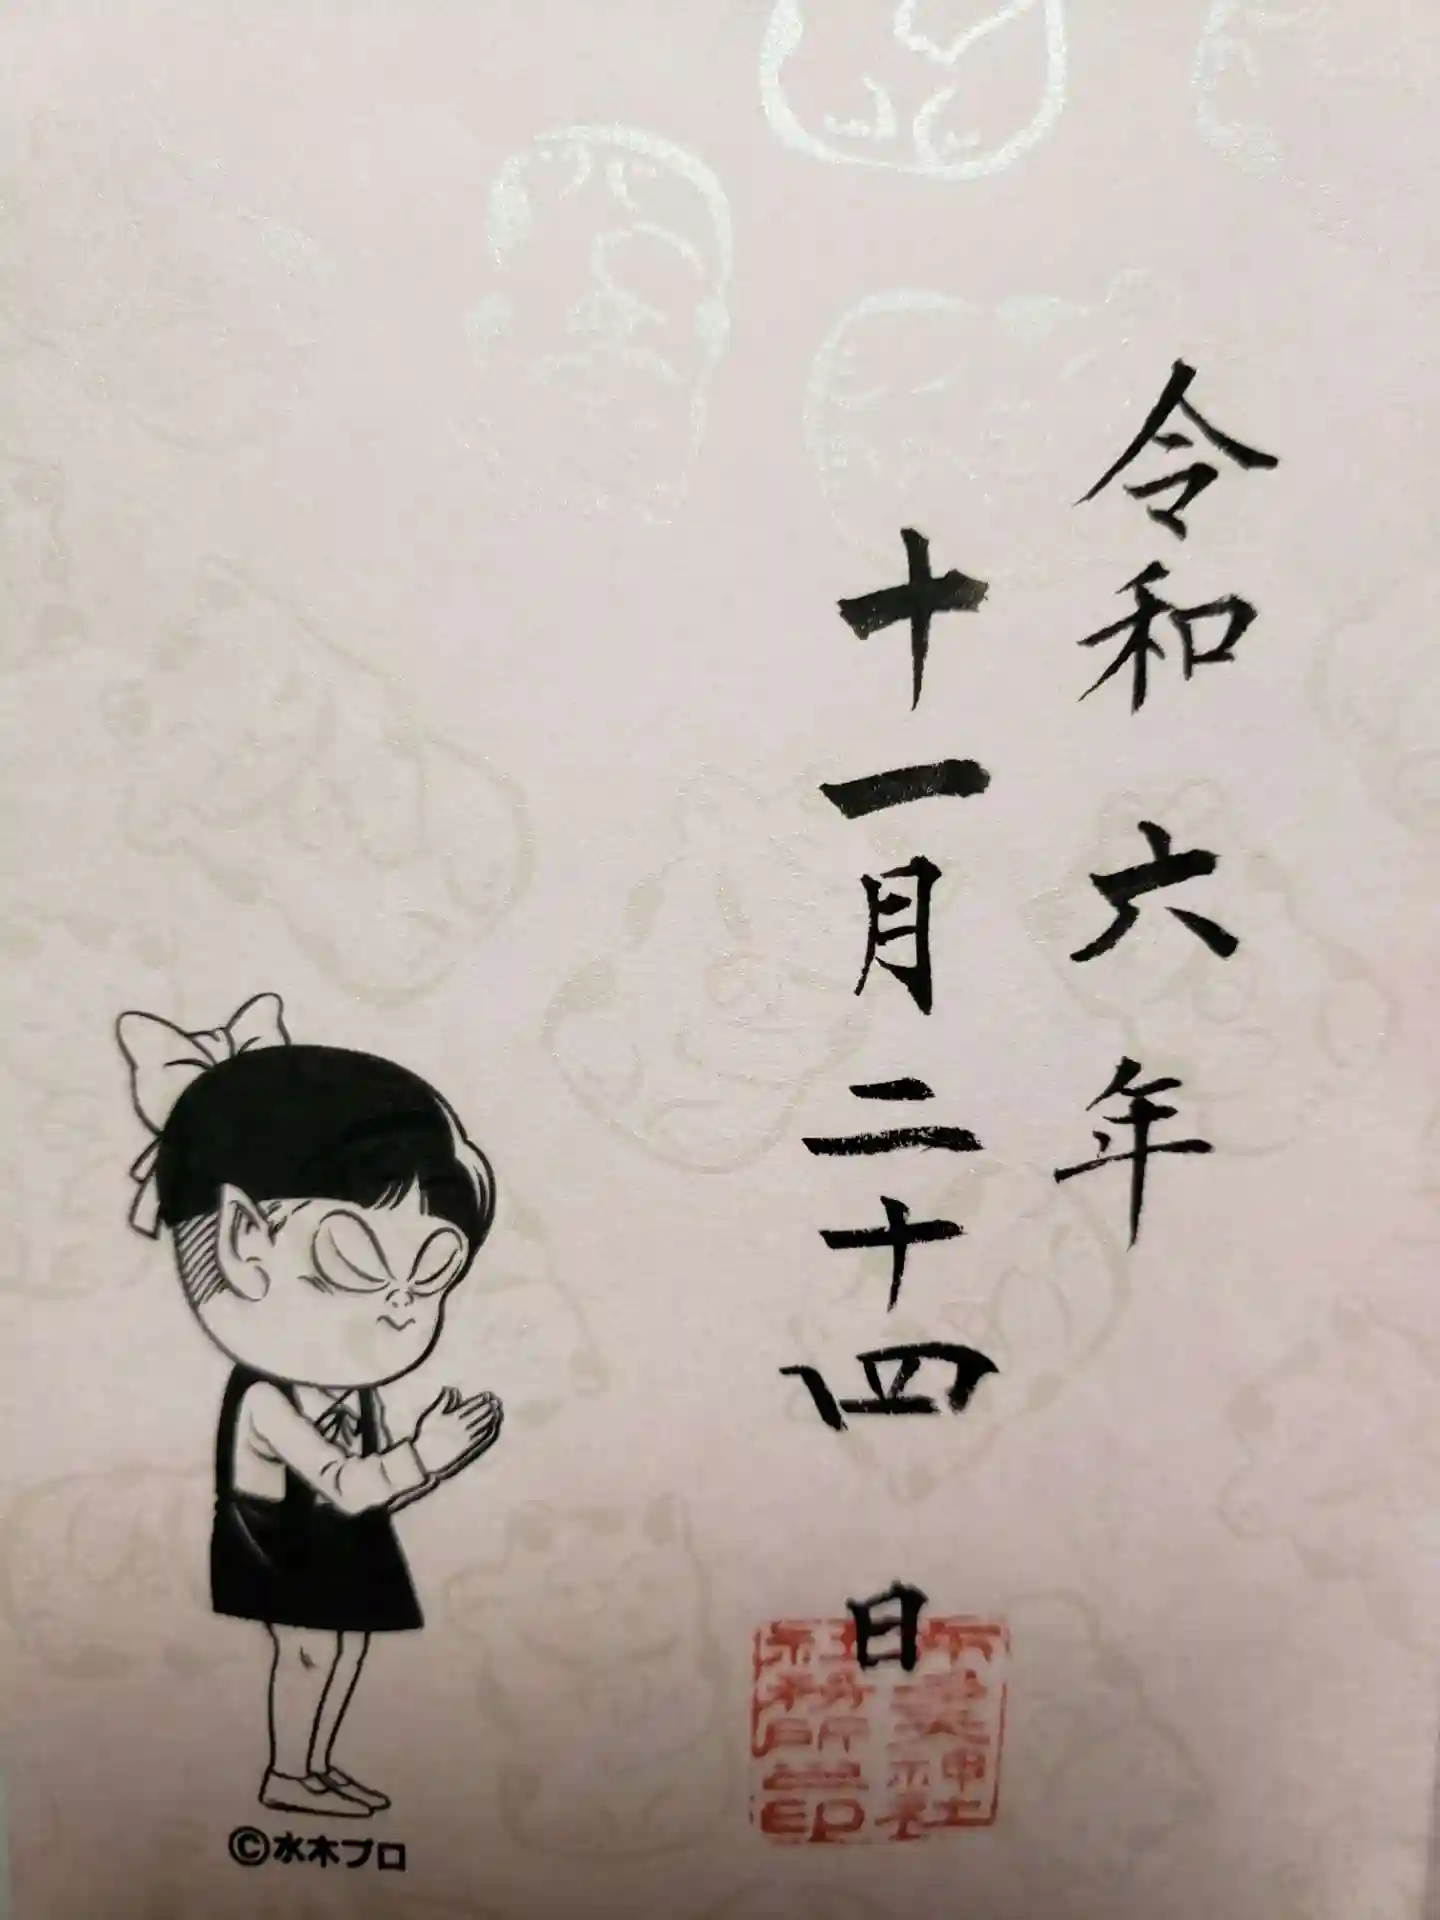 令和六年
十一月二十四日
社務所之印
©水木プロ